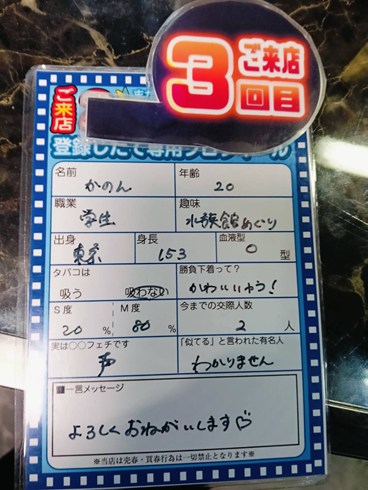 ご来店
3回目
ご来店
登録したて専用プロフィール
名前
かのん
年齢
20
職業
学生
趣味
水族館めぐり
出身
東京
身長
153
血液型
O 型
タバコは
吸う 吸わない
勝負下着って?
かわいいゆう!
S度
20 %
M度
80 %
今までの交際人数
2 人
実は○○フェチです
声
「似てる」と言われた有名人
わかりません
■一言メッセージ
よろしくおねがいします♡
※当店は売春・買春行為は一切禁止となります※